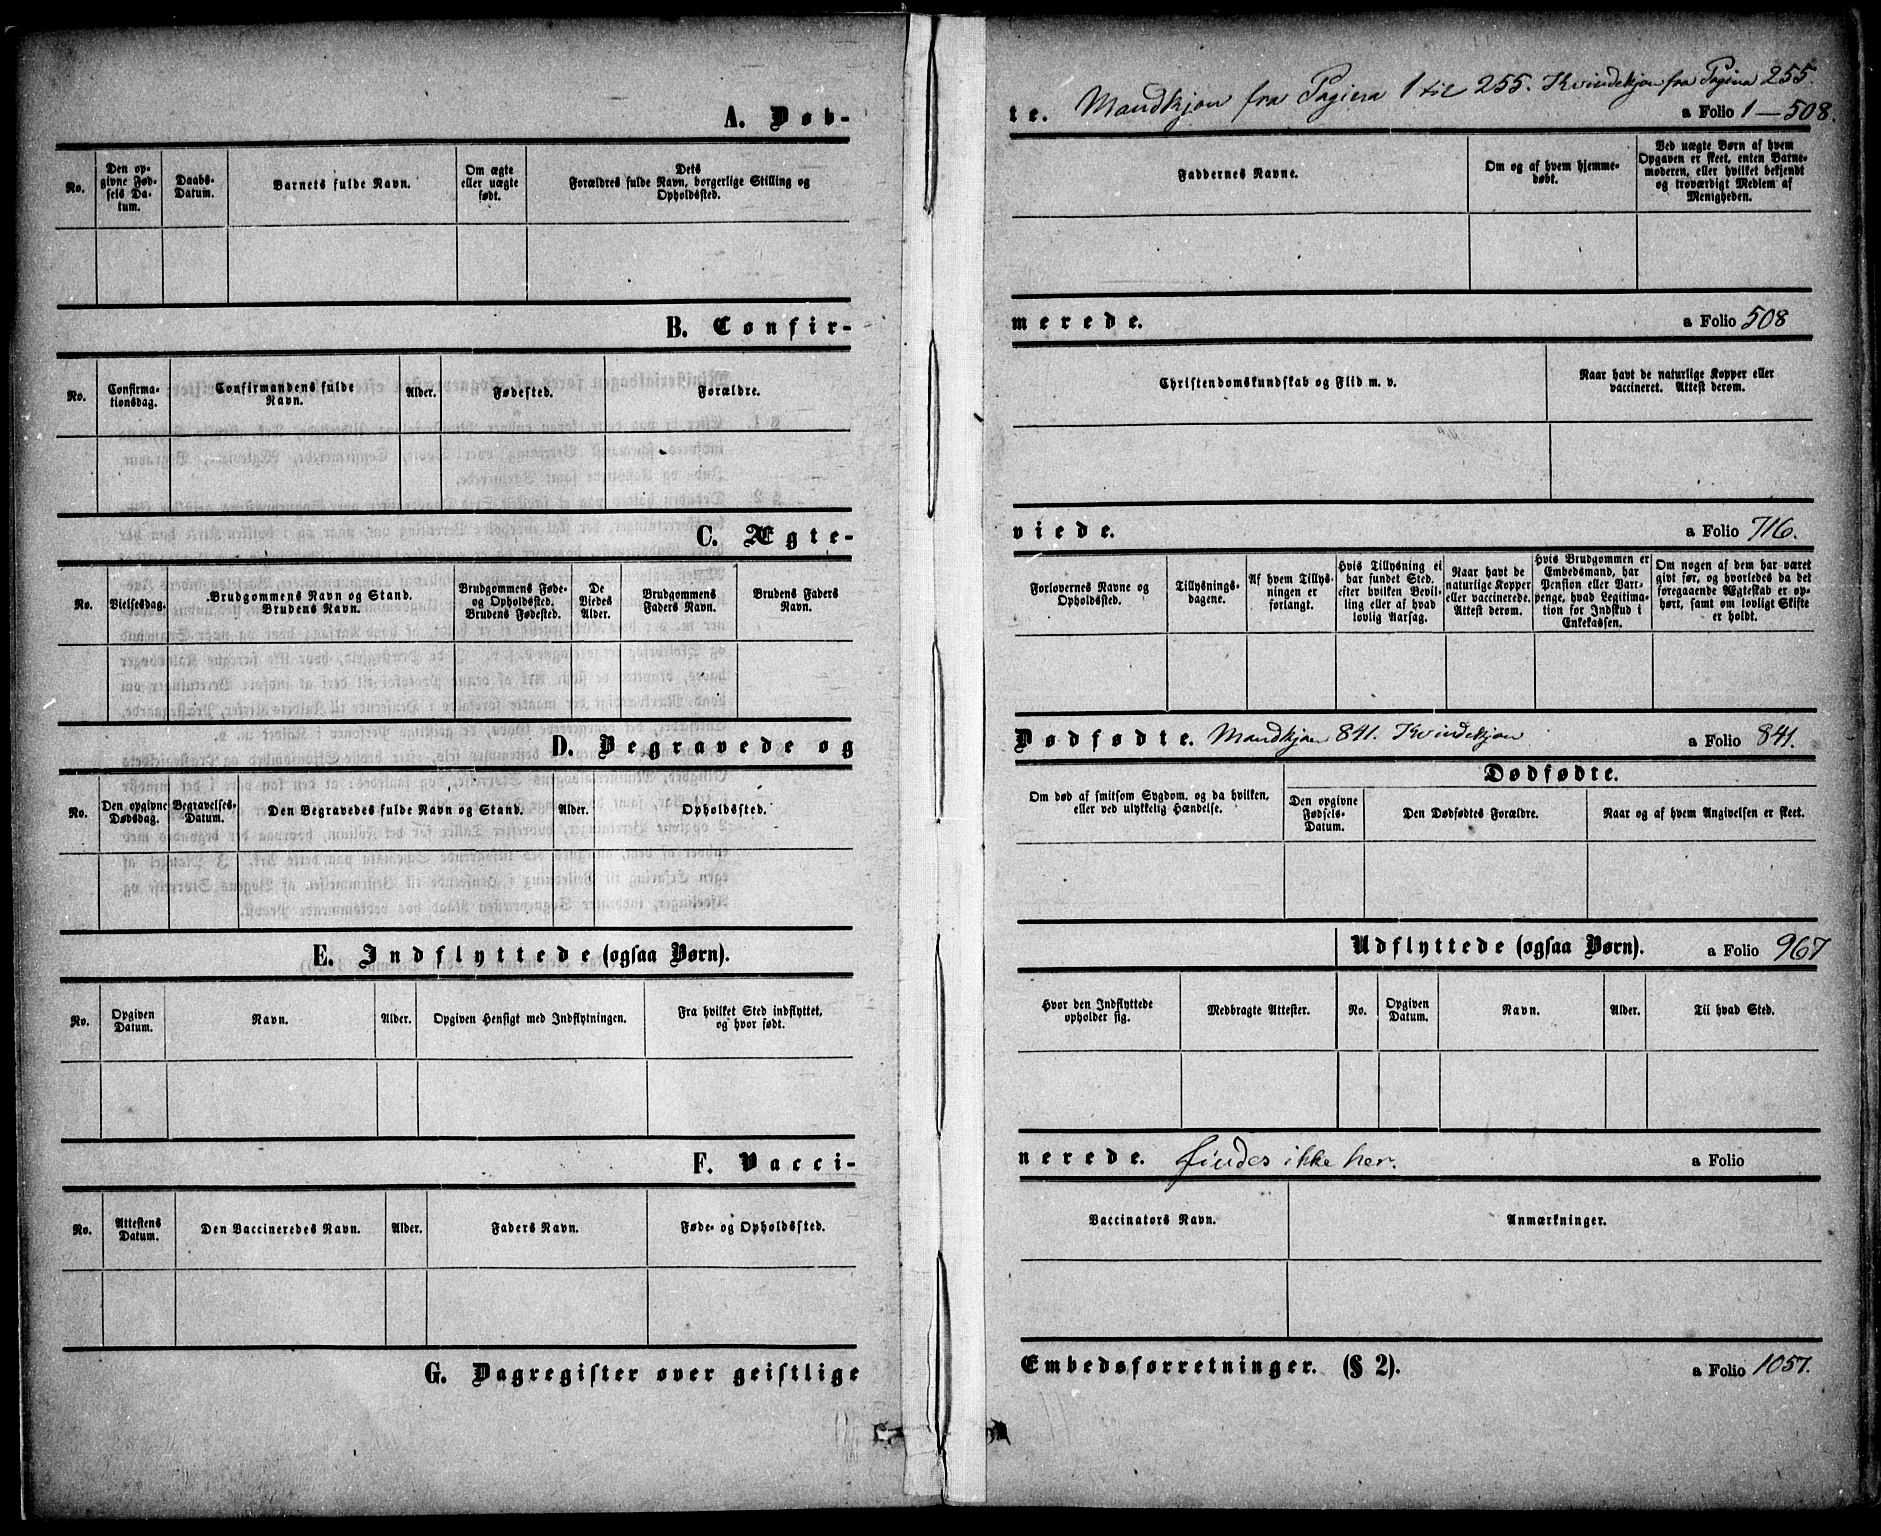 A. Døb-
te. Mandkjøn fra Pagina 1 til 255. Kvindekjøn fra Pagina 255.
a Folio 1—508.
No.
Den op-
givne Fød-
sels Da-
tum.
Daabs-
Datum.
Barnets fulde Navn.
Om ægte
eller uægte
født.
Dets
Forældres fulde Navn, borgerlige Stilling og
Opholdssted.
Faddernes Navne.
Om og af hvem hjemme-
døbt.
Ved uægte Børn af hvem
Opgaven er skeet, enten Barne-
moderen, eller hvilket bekjendt
og troværdigt Medlem af
Menigheden.
B. Confir-
merede.
a Folio 508
No.
Confirma-
tionsdag.
Confirmandens fulde
Navn.
Alder.
Fødested.
Forældre.
Christendomskundskab og Flid m. v.
Naar havt de naturlige Kopper eller
vaccineret. Attest derom.
C. Ægte-
viede.
a Folio 716.
No.
Vielsesdag.
Brudgommens Navn og Stand.
Brudens Navn.
Brudgommens Føde-
og Opholdssted.
Brudens Fødested.
De
Viedes
Alder.
Brudgommens
Faders Navn.
Brudens Faders
Navn.
Forlovernes Navne og
Opholdssted.
Tillysnings-
dagene.
Af hvem Tillys-
ningen er
forlangt.
Hvis Tillysning ei
har fundet Sted,
efter hvilken Bevil-
ling eller af hvad
lovlig Aarsag.
Naar havt de
naturlige Kopper
eller vaccinerede.
Attest derom.
Hvis Brudgommen er
Embedsmand, har
Pension eller Vart-
penge, hvad Legitima-
tion for Indskud i
Enkekassen.
Om nogen af dem har været
gift før, og hvorledes da det
foregaaende Ægteskab er op-
hørt, samt om lovligt Skifte
er holdt.
D. Begravede og
Dødfødte. Mandkjøn 841. Kvindekjøn
a Folio 841.
No.
Den opgivne
Dødsdag.
Begravelses-
Datum.
Den Begravedes fulde Navn og Stand.
Alder.
Opholdssted.
Om død af smitsom Sygdom, og da hvilken,
eller ved ulykkelig Hændelse.
Dødfødte.
Den opgivne
Fødsels-
Datum.
Den Dødfødtes Forældre.
Naar og af hvem Angivelsen er skeet.
E. Indflyttede (ogsaa Børn).
Udflyttede (ogsaa Børn).
a Folio 967
No.
Opgiven
Datum.
Navn.
Alder.
Opgiven Hensigt med Indflytningen.
Fra hvilket Sted indflyttet,
og hvor født.
Hvor den Indflyttede
opholder sig.
Medbragte Attester.
No.
Opgiven
Datum.
Navn.
Alder.
Til hvad Sted.
F. Vacci-
nerede. findes ikke her.
a Folio
No.
Attestens
Datum.
Den Vaccineredes Navn.
Alder.
Faders Navn.
Føde- og Opholdssted.
Vaccinators Navn.
Anmærkninger.
G. Dagregister over geistlige
Embedsforretninger. (§ 2).
a Folio 1057.